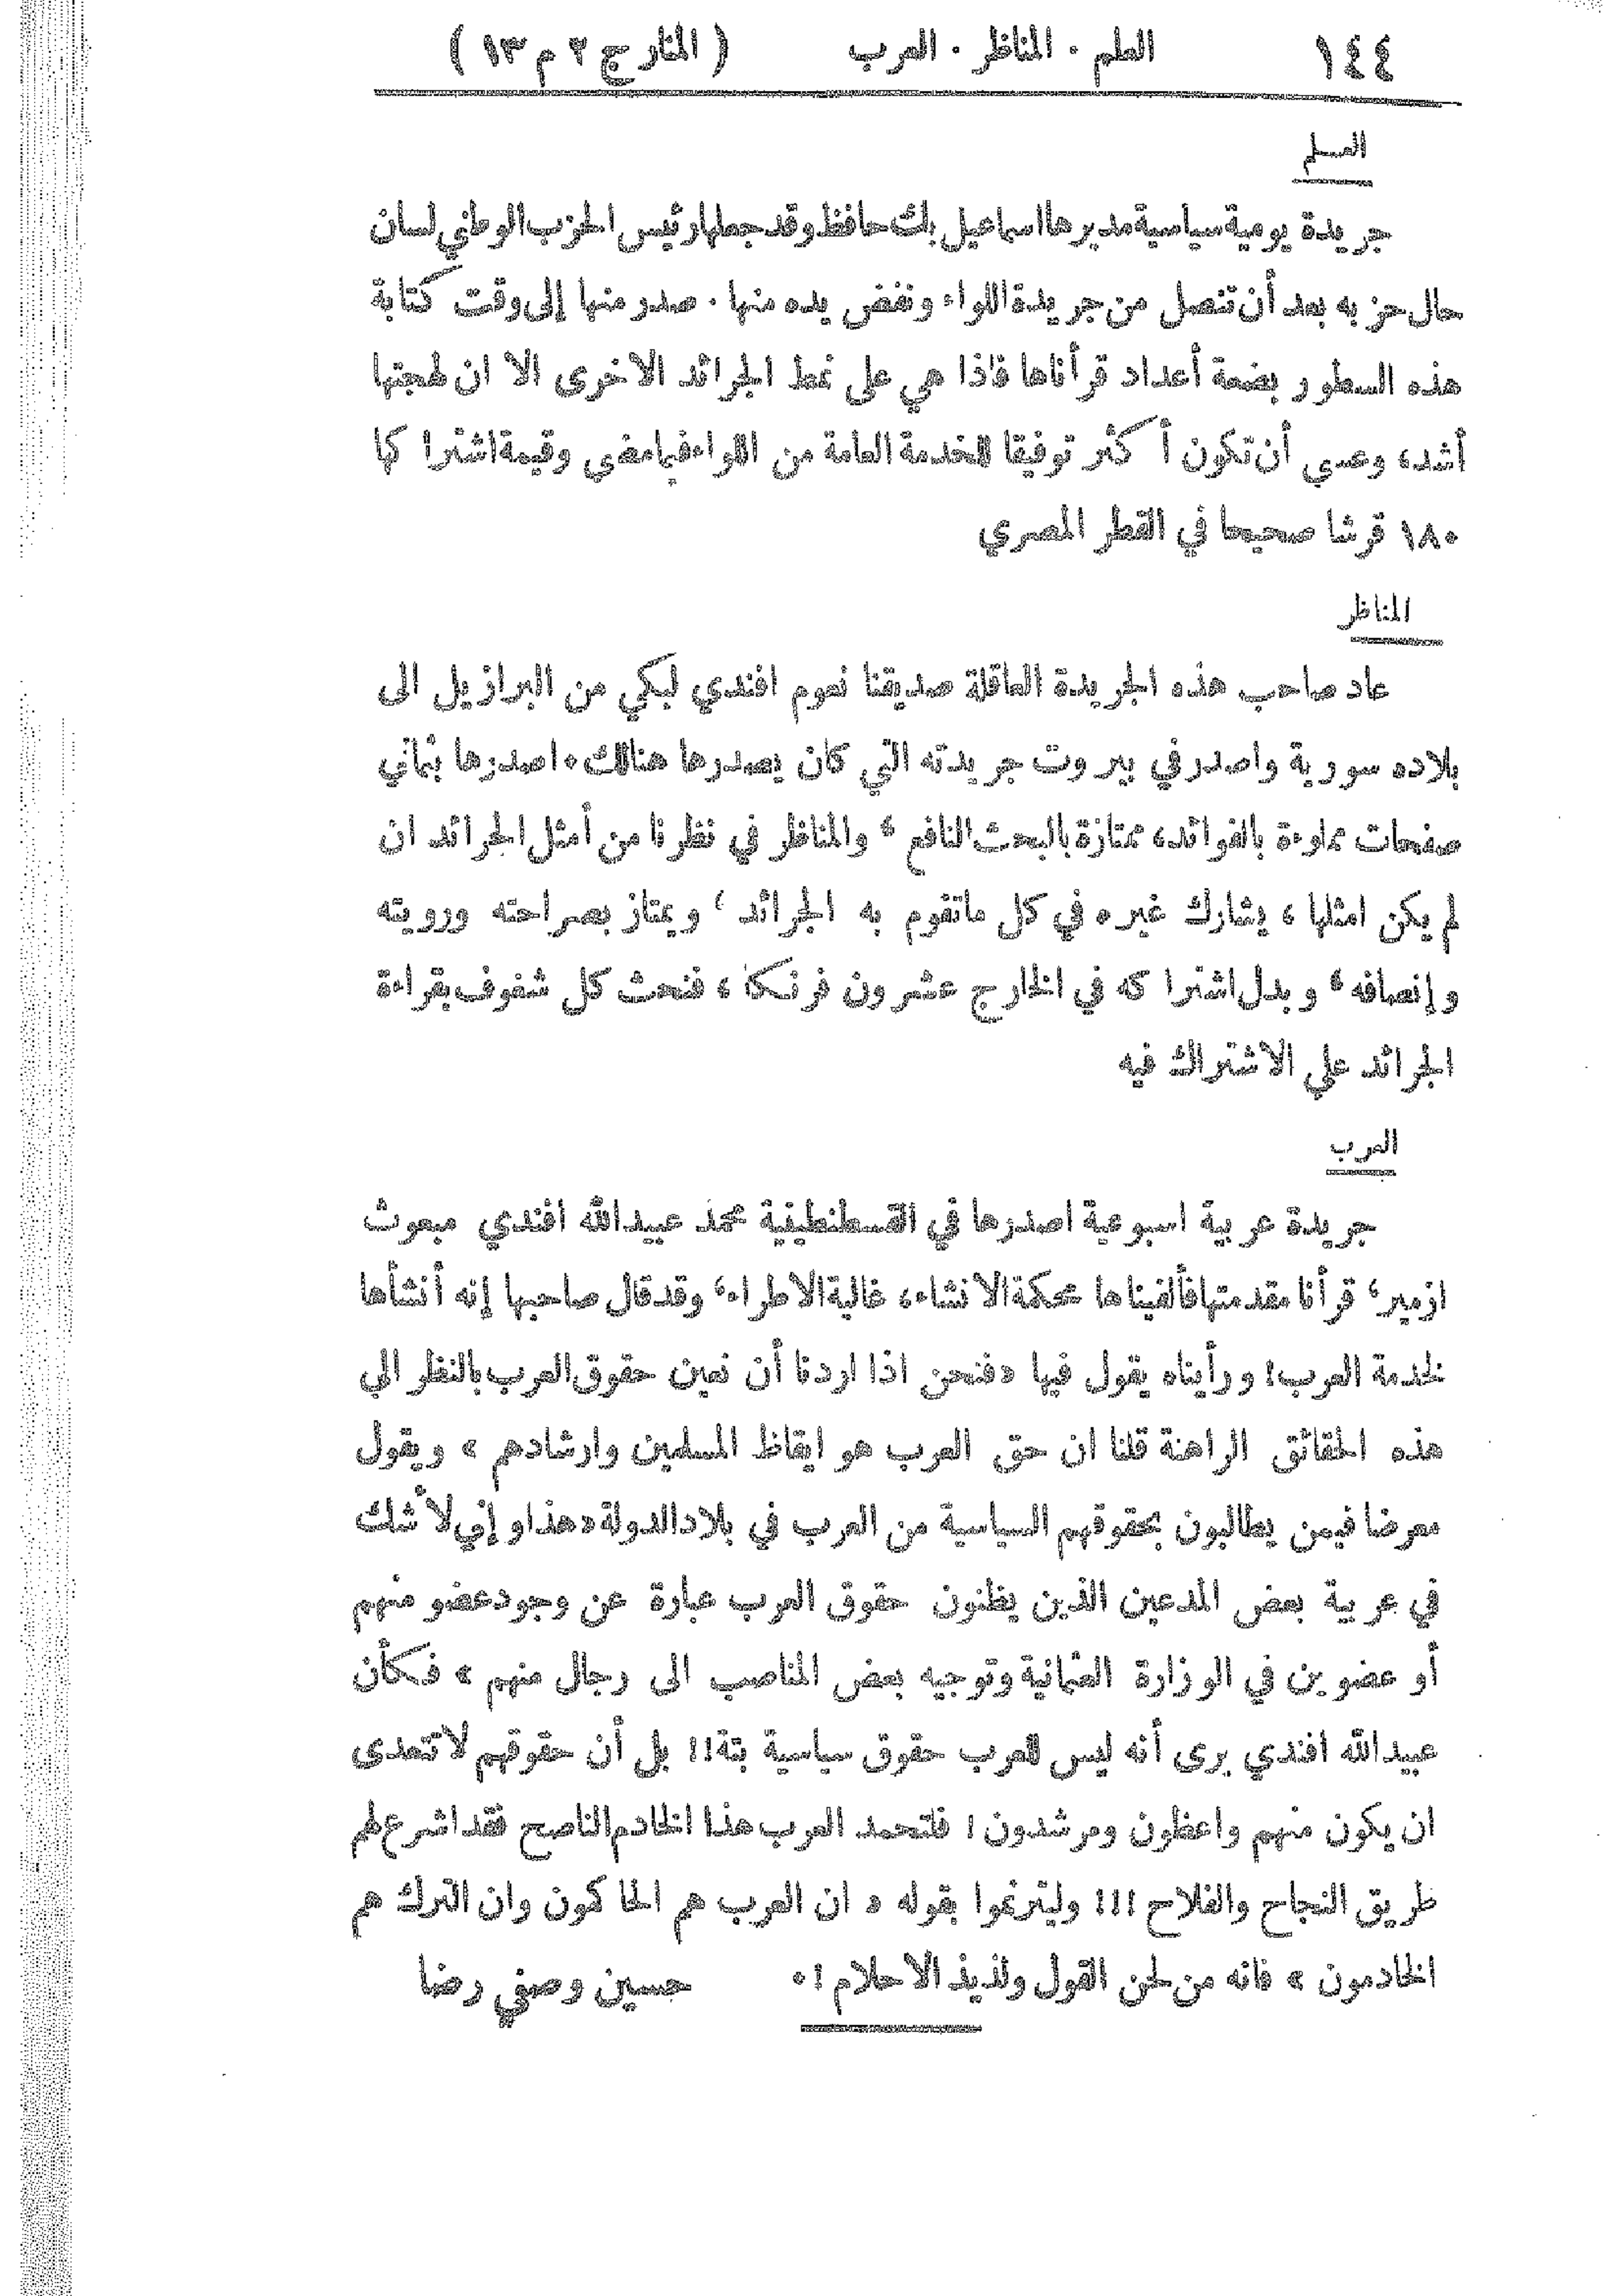 ١٤٤ العلم . المناظر . العرب ( المنار ج ٢ م ١٣ )
العـلم
جريدة يومية سياسية مديرها اسماعيل بك حافظ وقد جعلها رئيس الحزب الوطني لسان
حال حزبه بعد أن تنصل من جريدة اللواء ونفض يده منها . صدر منها إلى وقت كتابة
هذه السطور بضعة أعداد قرأناها فاذا هي على نمط الجرائد الاخرى الا ان لهجتها
أشد، وعسى أن تكون أكثر توفيقا للخدمة العامة من اللواء فيما مضى وقيمة اشتراكها
١٨٠ قرشا صحيحا في القطر المصري
المناظر
عاد صاحب هذه الجريدة العاقلة صديقنا نعوم افندي لبكي من البرازيل الى
بلاده سورية واصدر في بيروت جريدته التي كان يصدرها هنالك . اصدرها بثماني
صفحات مملوءة بالفوائد، ممتازة بالبحث النافع ، والمناظر في نظرنا من أمثل الجرائد ان
لم يكن امثلها ، يشارك غيره في كل ماتقوم به الجرائد ، ويمتاز بصراحته ورويته
وإنصافه ، وبدل اشتراكه في الخارج عشرون فرنكا ، فنحث كل شغوف بقراءة
الجرائد على الاشتراك فيه
العرب
جريدة عربية اسبوعية اصدرها في القسطنطينية محمد عبيدالله افندي مبعوث
ازمير، قرأنا مقدمتها فألفيناها محكمة الانشاء، غالية الاطراء، وقد قال صاحبها إنه أنشأها
لخدمة العرب! ورأيناه يقول فيها «فنحن اذا اردنا أن نعين حقوق العرب بالنظر الى
هذه الحقائق الراهنة قلنا ان حق العرب هو ايقاظ المسلمين وارشادهم » ويقول
معرضا فيمن يطالبون بحقوقهم السياسية من العرب في بلاد الدولة «هذا وإني لأشك
في عربية بعض المدعين الذين يظنون حقوق العرب عبارة عن وجود عضو منهم
أو عضوين في الوزارة العثمانية وتوجيه بعض المناصب الى رجال منهم » فكأن
عبيدالله افندي يرى أنه ليس للعرب حقوق سياسية بتة!! بل أن حقوقهم لا تتعدى
ان يكون منهم واعظون ومرشدون ! فلتحمد العرب هذا الخادم الناصح فقد اشرع لهم
طريق النجاح والفلاح !!! وليترنموا بقوله « ان العرب هم الحاكمون وان الترك هم
الخادمون » فانه من لحن القول ولذيذ الاحلام !. حسين وصفي رضا